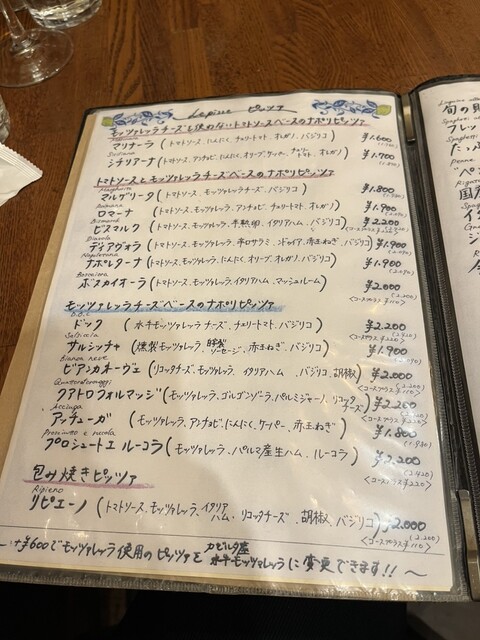 Le pizze ピッツァ
モッツァレッラチーズを使わないトマトソースベースのナポリピッツァ
マリナーラ (トマトソース、にんにく、チェリートマト、オレガノ、バジリコ) ¥1.600
Siciliana
シチリアーナ (トマトソース、アンチョビ、にんにく、オリーブ、ケッパー、チェリートマト、オレガノ) ¥1.900
トマトソースとモッツァレラチーズベースのナポリピッツァ
Margherita
マルゲリータ (トマトソース、モッツァレラチーズ、バジリコ) ¥1.800
Romana
ロマーナ (トマトソース、モッツァレラ、アンチョビ、チェリートマト、オレガノ) ¥1.900
Bismarck
ビスマルク (トマトソース、モッツァレラ、半熟卵、イタリアハム、バジリコ) ¥2.200
Diavola
ディアヴォラ (トマトソース、モッツァレラ、辛口サラミ、ンドゥイア、赤玉ねぎ、バジリコ) ¥1.900
Napoletana
ナポレターナ (トマトソース、モッツァレラ、にんにく、オリーブ、オレガノ、バジリコ) ¥1.900
(2.090)
Boscaiora
ボスカイオーラ (トマトソース、モッツァレラ、イタリアハム、マッシュルーム) ¥2.000
(2.200)
<コースプラス¥110>
モッツァレラチーズベースのナポリピッツァ
D.O.C
ドック (水牛モッツァレラチーズ、チェリートマト、バジリコ) ¥2.200
Salsiccia
サルシッチャ (燻製モッツァレラ、自家製ソーセージ、赤玉ねぎ、バジリコ) ¥1.900
Bianca neve
ビアンカネーヴェ (リコッタチーズ、モッツァレラ、イタリアハム、バジリコ、胡椒) ¥2.000
Quattroformaggi
クアトロフォルマッジ (モッツァレラ、ゴルゴンゾーラ、パルミジャーノ、リコッタチーズ) ¥2.200
Acciuga
アッチューガ (モッツァレラ、アンチョビ、にんにく、ケッパー、赤玉ねぎ) ¥1.800
(1.980)
Prosciutto e rucola
プロシュートエルーコラ (モッツァレラ、パルマ産生ハム、ルーコラ) ¥2.200
(2.420)
<コースプラス¥220>
包み焼きピッツァ
Ripieno
リピエーノ (トマトソース、モッツァレラ、イタリアハム、リコッタチーズ、胡椒、バジリコ) ¥2.000
(2.200)
<コースプラス¥110>
〜 +¥600でモッツァレラ使用のピッツァを水牛モッツァレラに変更できます!! 〜
旬の
フレッ
たっぷ
Penne
国産